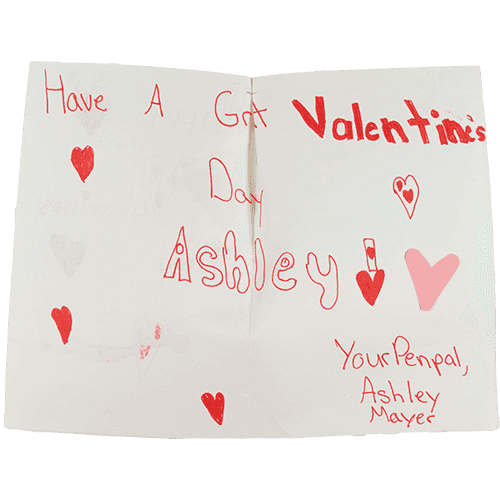 Have A Grt Valentine's
Day
Ashley!
Your Penpal,
Ashley
Mayer